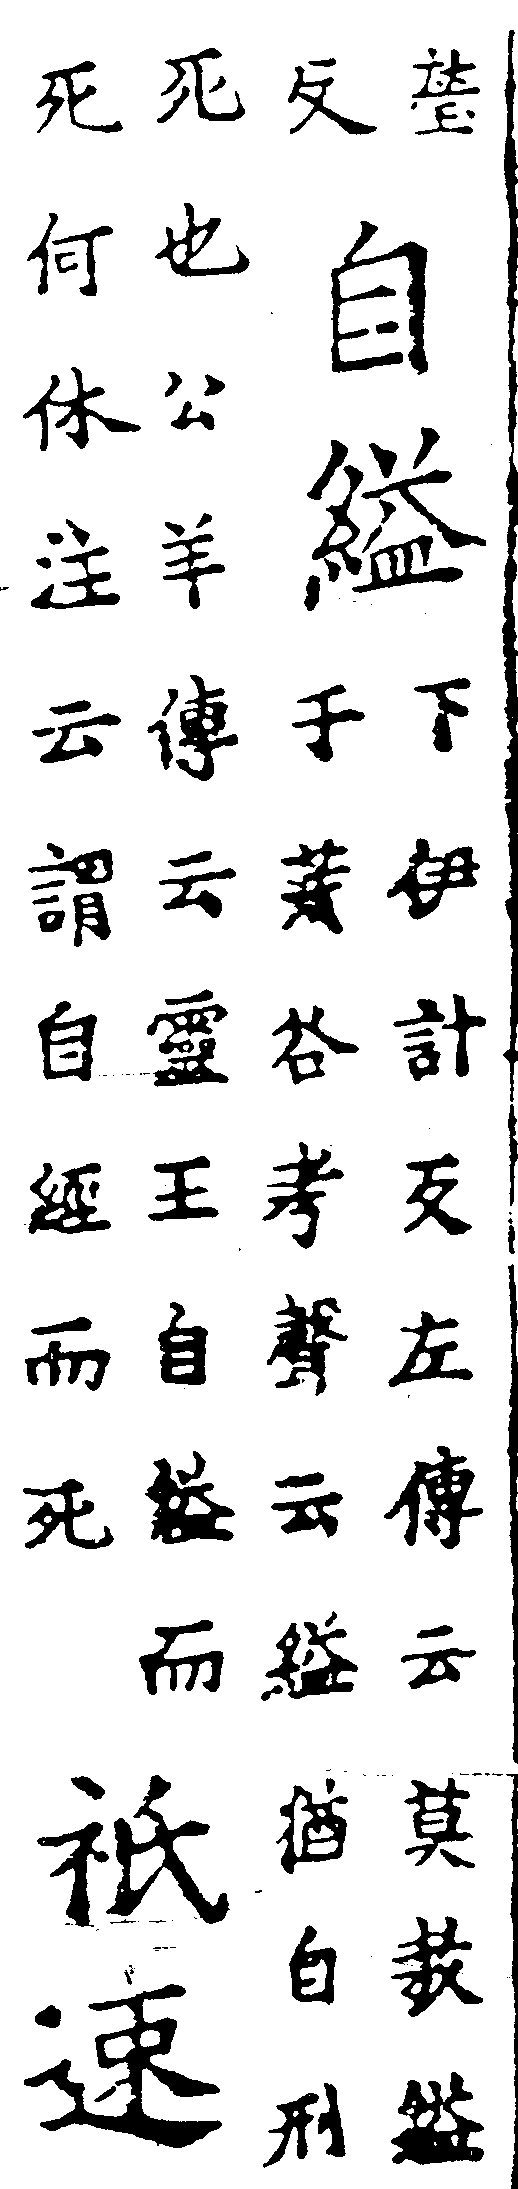 反
自縊
下伊計反左傳云莫敖縊
于荒谷考聲云縊猶自刑
死也公羊傳云靈王自縊而
死何休注云謂自經而死
祇速